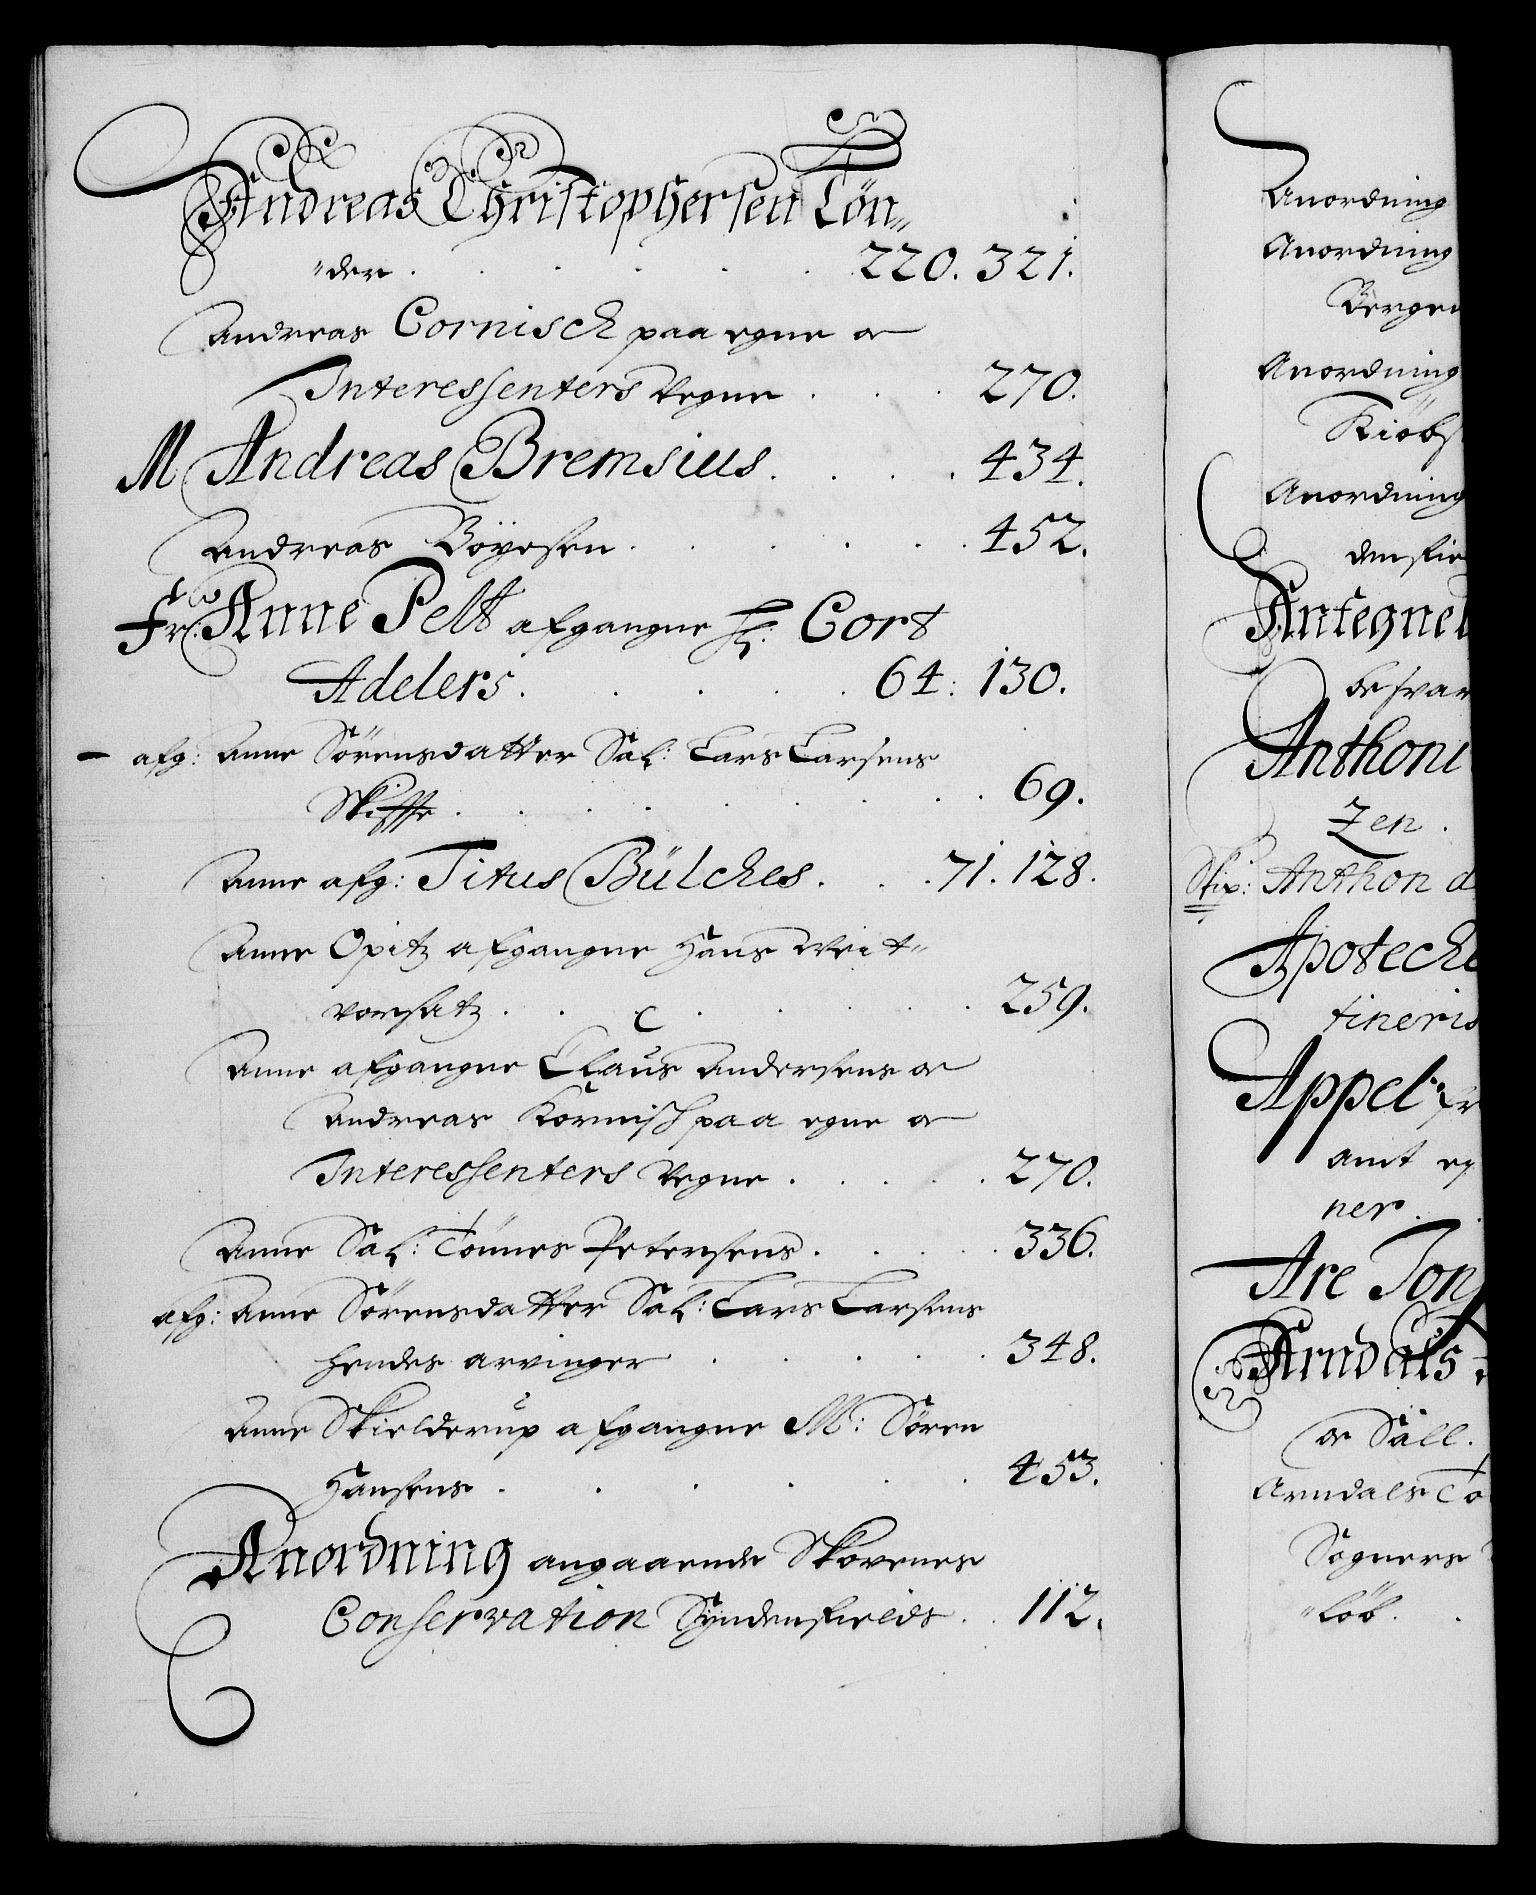 Andreas Christophersen Tøn„
„der . . . . . . 220. 321.
Andreas Cornisch paa egne oc
Interessenters Vegne . . . 270.
M Andreas Bremsius . . . . 434.
Andreas Böÿesen . . . . . . 452.
Fr: Anne Pelt afgangne H: Cort
Adelers . . . . . 64: 130.
— afg: Anne Sörensdatter Sal: Lars Larsens
Skiffte . . . . . . . . 69.
Anne afg: Titus Bülches . . . 71. 128.
Anne Opitz afgangne Hans Weit„
vorsatz . . . . . . . 259.
Anne afgangne Claus Andersens oc
Andreas Kornisch paa egne oc
Interessenters Vegne . . . . . 270.
Anne Sal: Tönnes Petersens . . . . 336.
afg: Anne Sörensdatter Sal: Lars Larsens
hendes arvinger . . . . . 348.
Anne Skielderup afgangne M: Sören
Hansens . . . . . . 453.
Anordning angaaende Skovenes
Conservation Syndenfields . . 112.
Anordning
Anordning
Bergen
Anordning
Kiöbs
Anordning
den fie
Antegnel
oc svar
Anthoni
Zen .
Skip: Anthon d
Apoteche
tineris
Appel fr
amt eg
ner .
Are Jon
Arndals
oc Säll.
Arndals To
Sogners
„löb . .